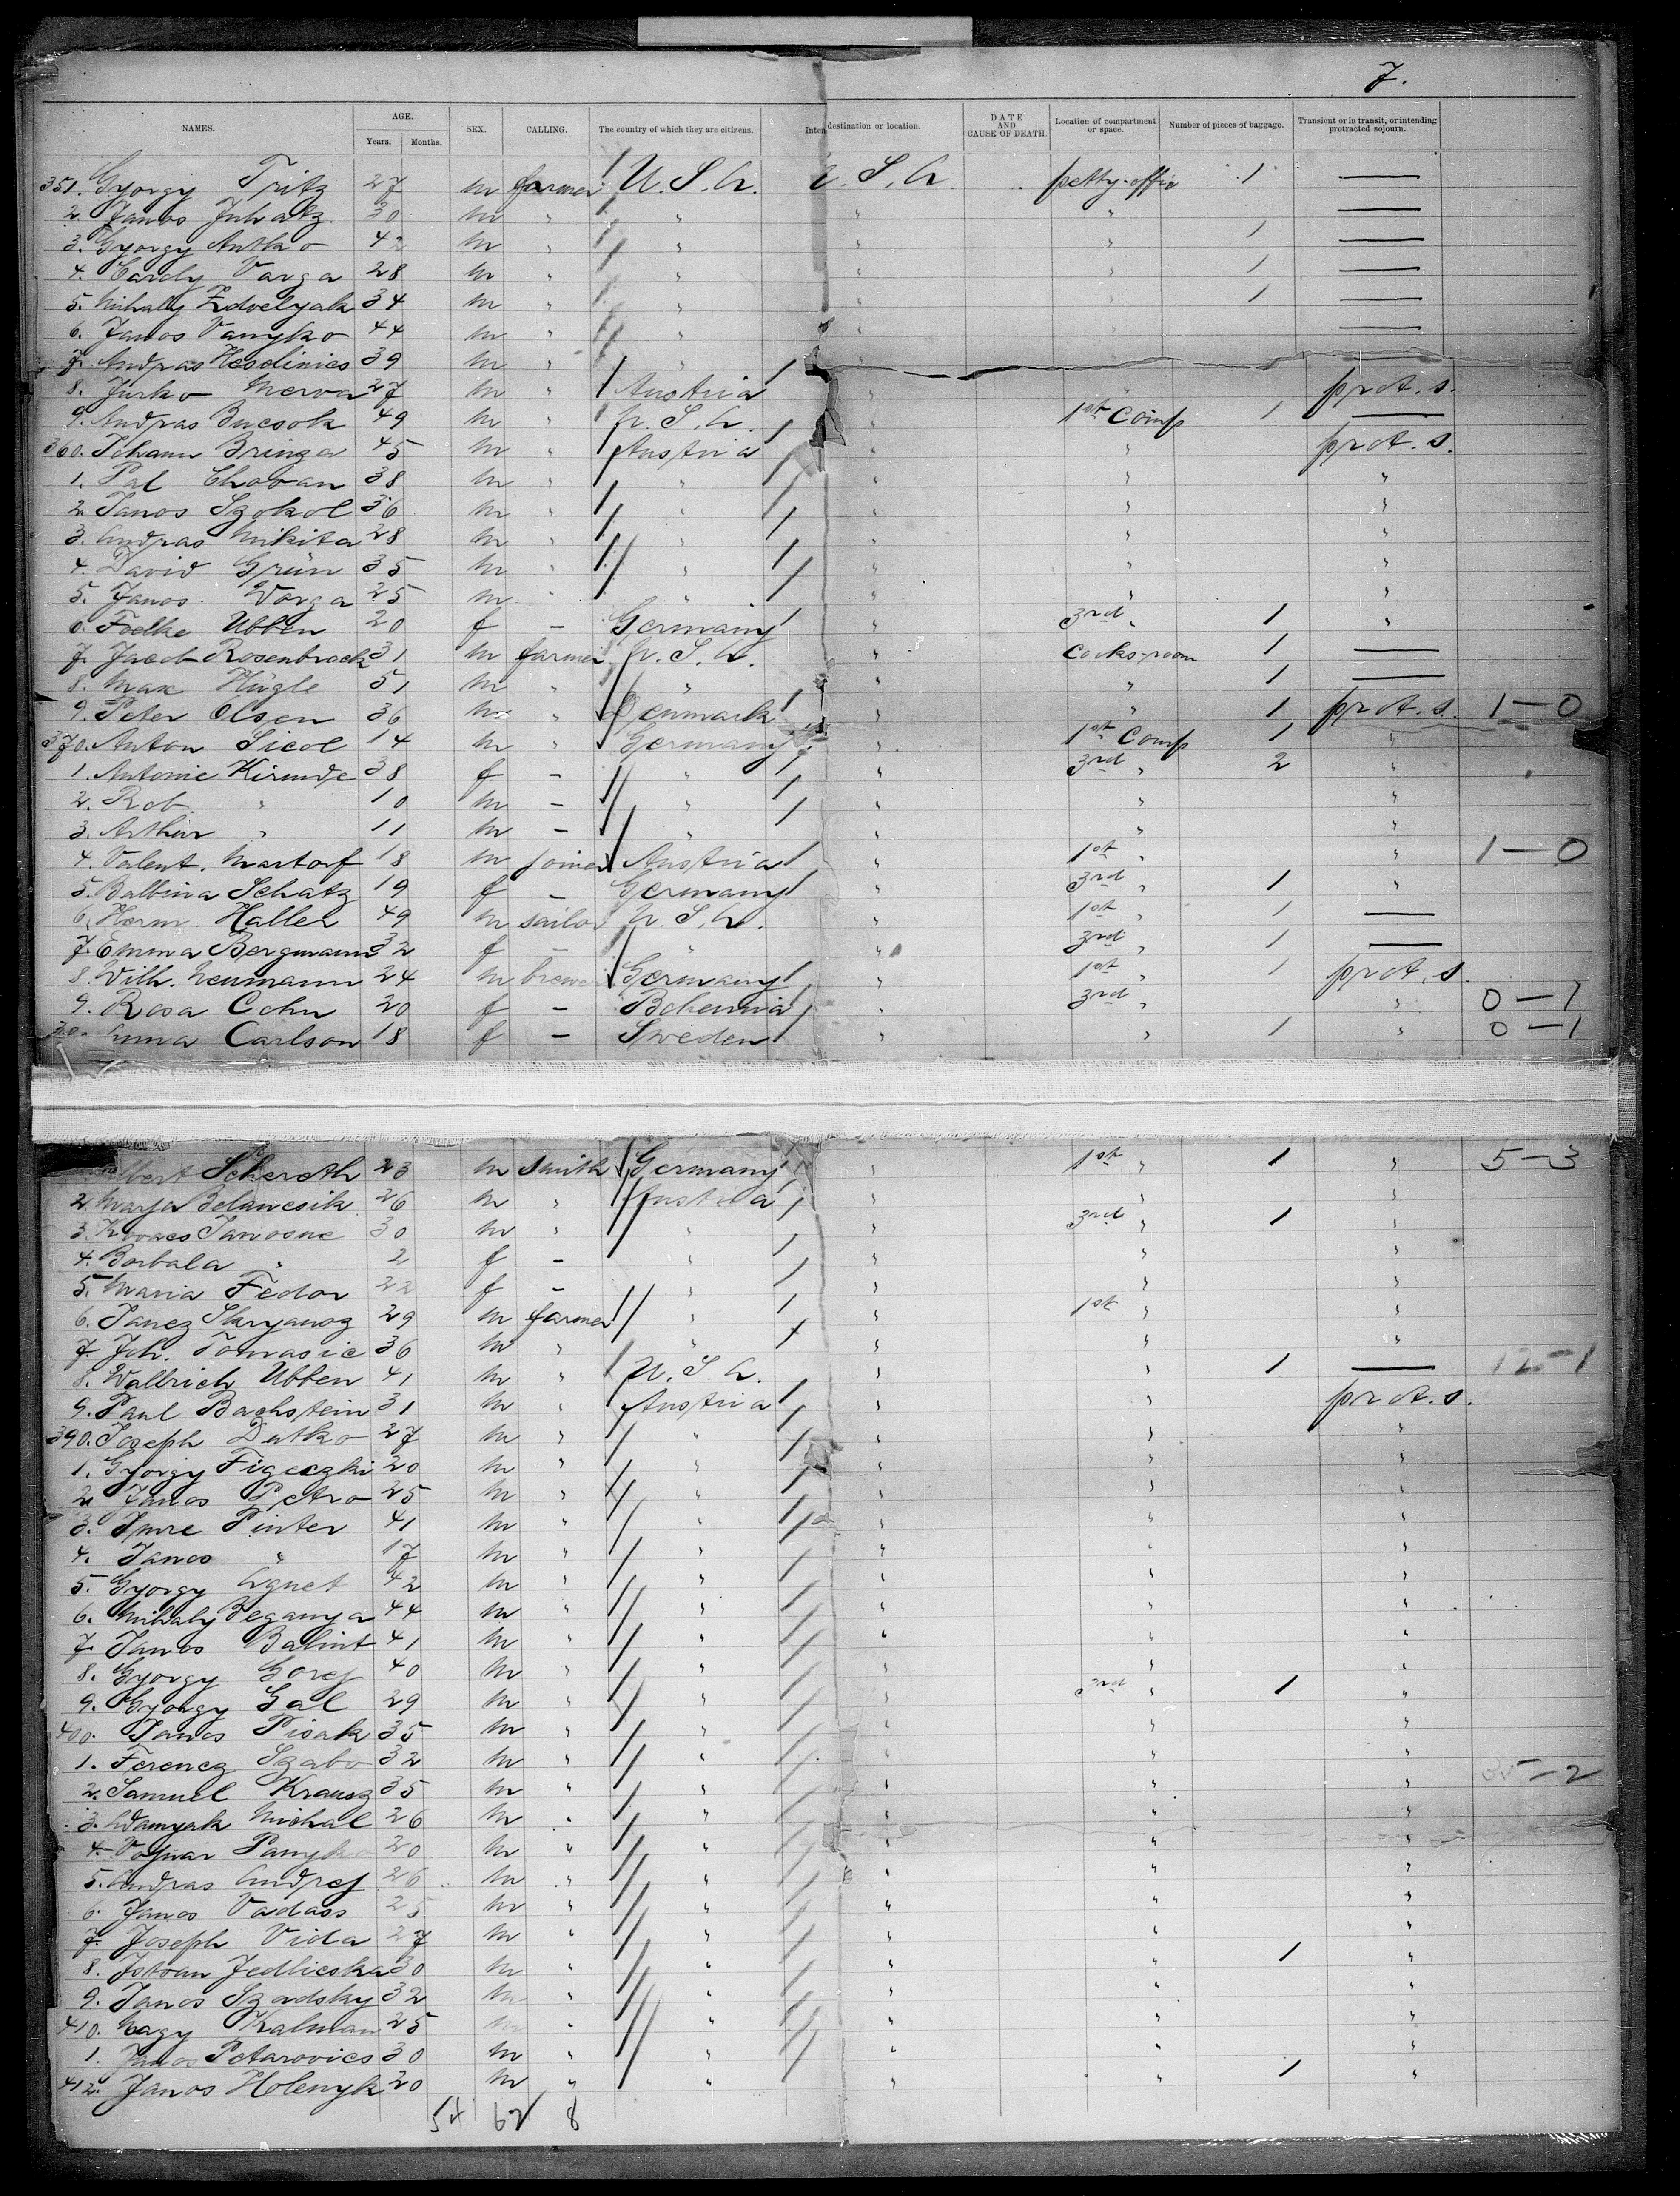 7.
NAMES. AGE. Years. Months. SEX. CALLING. The country of which they are citizens. Inten destination or location. DATE AND CAUSE OF DEATH. Location of compartment or space. Number of pieces of baggage. Transient or in transit, or intending protracted sojourn.
351. Gyorgy Tritz 27 m farmer U.S.A. U.S.A. petty-offic 1 —
2. Janos Juhatz 30 m " " " " —
3. Gyorgy Antko 42 m " " " " 1 —
4. Varga 28 m " " " " 1 —
5. Mihaly Zdvelyak 34 m " " " " 1 —
6. Janos Vanyko 44 m " " " " —
7. Andras Hesdinics 39 m " " " " —
8. Jurko Merva 27 m " Austria " " prot. s.
9. Andras Bucsok 49 m " U.S.A. " 1st Comp 1 —
360. Johann Bringa 45 m " Austria " " prot. s.
1. Pal Chovan 38 m " " " " "
2. Janos Szokol 36 m " " " " "
3. Andras Mikita 28 m " " " " "
4. David Grün 35 m " " " " "
5. Janos Varga 25 m " " " " "
6. Foelke Ubben 20 f — Germany " 3rd " 1 "
7. Jacob Rosenbrock 31 m farmer U.S.A. " Cooks-room 1 —
8. Max Hügle 51 m " " " " 1 —
9. Peter Olsen 36 m " Denmark " " 1 prot. s. 1—0
370. Anton Sicol 14 m " Germany " 1st Comp 1 "
1. Antonie Kirmse 38 f — " " 3rd " 2 "
2. Rob. " 10 m — " " " "
3. Arthur " 11 m — " " " "
4. Valent. Martorf 18 m joiner Austria " 1st " " 1—0
5. Balbina Schatz 19 f — Germany " 3rd " 1 "
6. Herm. Haller 49 m sailor U.S.A. " 1st " 1 —
7. Emma Bergmann 32 f — " " 3rd " 1 —
8. Wilh. Neumann 24 m brewer Germany " 1st " 1 prot. s.
9. Rosa Cohn 20 f — Bohemia " 3rd " " 0—1
Anna Carlson 18 f — Sweden " " 1 " 0—1
Albert Schereth 23 m smith Germany " 1st " 1 " 5—3
2. Marya Belancsik 26 m " Austria " " "
3. Kovacs Janosne 30 m " " " 3rd " 1 "
4. Borbala " 2 f — " " " "
5. Maria Fedor 22 f — " " " "
6. Janez Skryanoz 29 m farmer " " 1st " "
7. Joh. Tomasic 36 m " " " " "
8. Wallrich Ubben 41 m " U.S.A. " " 1 — 12—1
9. Paul Bachstein 31 m " Austria " " prot. s.
390. Joseph Dutko 27 m " " " " "
1. Gyorgy Figeczki 20 m " " " " "
2. Janos Petro 25 m " " " " "
3. Imre Pinter 41 m " " " " "
4. Janos " 17 m " " " " "
5. Gyorgy Agnet 42 m " " " " "
6. Mihaly Beganya 44 m " " " " "
7. Janos Balint 41 m " " " " "
8. Gyorgy Gorej 40 m " " " " "
9. Gyorgy Gal 29 m " " " 3rd " 1 "
400. Janos Pisak 35 m " " " " "
1. Ferencz Szabo 32 m " " " " "
2. Samuel Krausz 35 m " " " " "
3. Adamyak Michal 26 m " " " " "
4. Vojnar Panyko 20 m " " " " "
5. Andras Andrej 26 m " " " " "
6. Janos Vadass 25 m " " " " "
7. Joseph Vida 27 m " " " " "
8. Istvan Jedlicska 30 m " " " " 1 "
9. Janos Szadsky 32 m " " " " "
410. Nagy Kalman 25 m " " " " "
1. Janos Petarovics 30 m " " " " "
412. Janos Holenyk 20 m " " " " 1 "
54 62 8